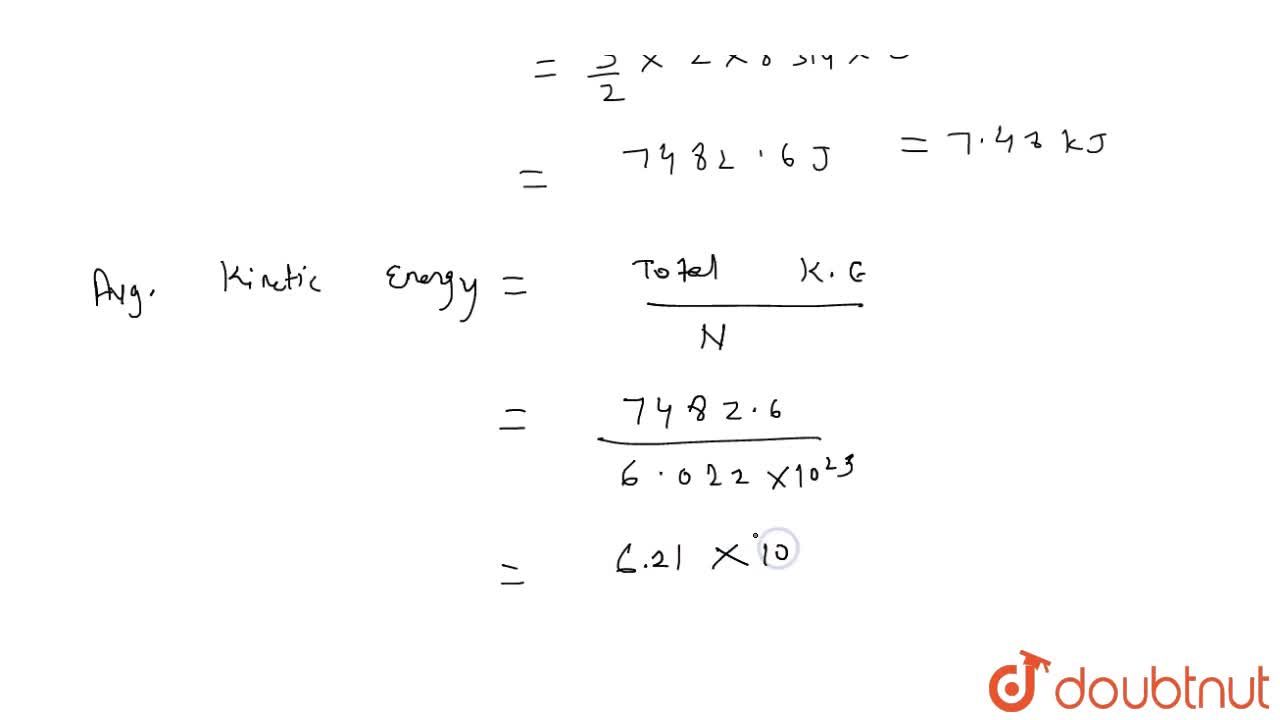 = 3/2 × 2 × 8 314 × 3
= 7482.6 J = 7.48 kJ
Avg. Kinetic Energy = Total K.E / N
= 7482.6 / 6.022 ×10²³
= 6.21 × 10
doubtnut